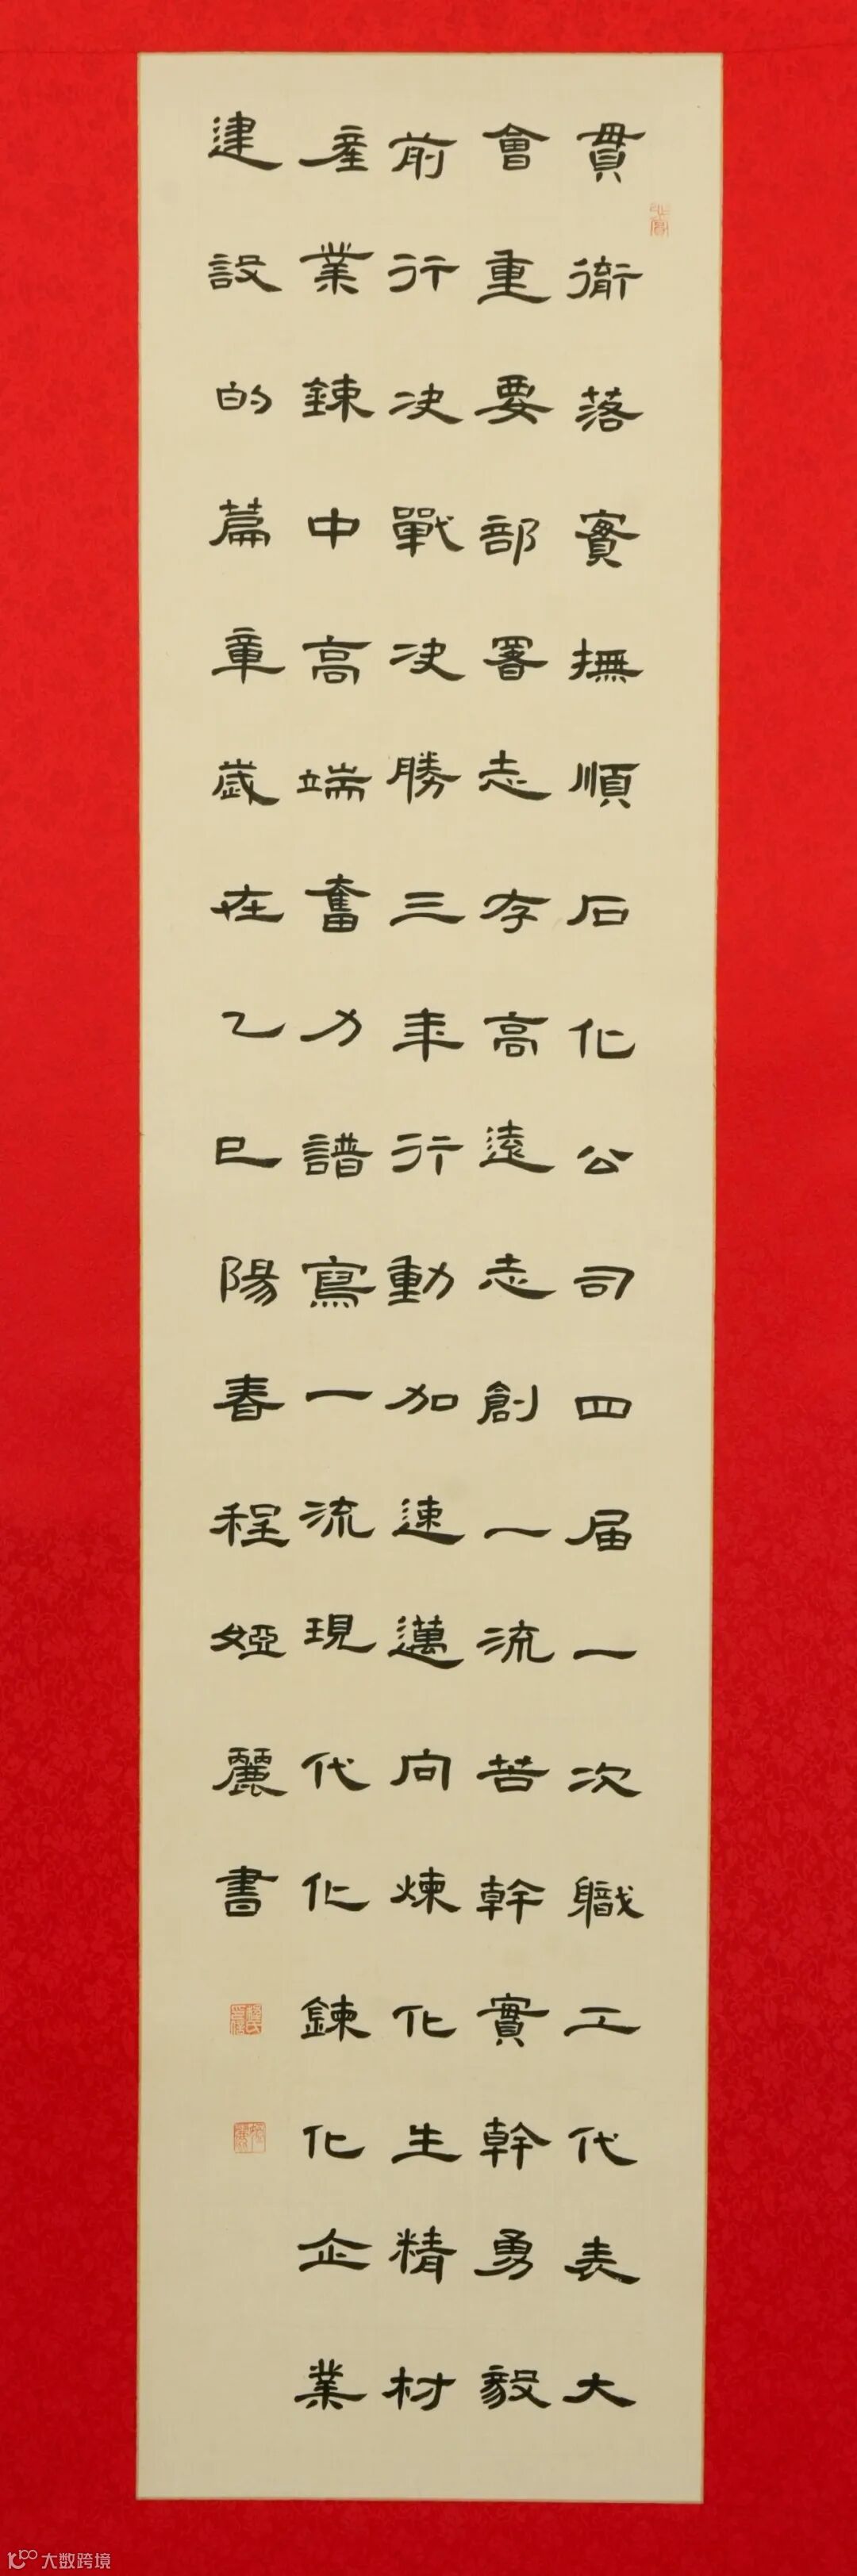 貫落實撫順石化公司四届一次職工代表大
會重要部署志存高遠志創一流苦幹實幹勇毅
前行决戰决勝三年行動加速邁向煉化生精材
産業鍊中高端奮力譜寫一流現代化鍊化企業
建設的篇章歲在乙巳陽春程婭麗書
大数跨境